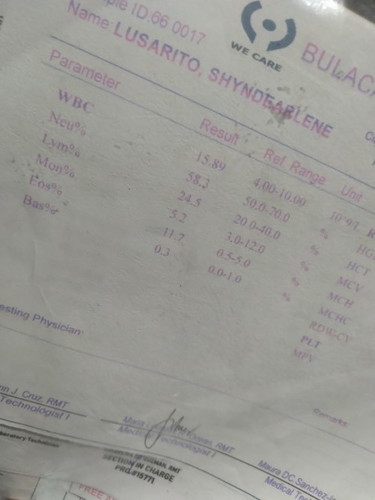 ple ID 66 0017
Name LUSARITO, SHYNDEARLENE
WE CARE
BULAC
Parameter Result Ref. Range Unit
WBC 15.89 4.00-10.00 10^9/L
Neu% 58.3 50.0-70.0 %
Lym% 24.5 20.0-40.0 %
Mon% 5.2 3.0-12.0 %
Eos% 11.7 0.5-5.0 %
Bas% 0.3 0.0-1.0 %
HG
HCT
MCV
MCH
MCHC
RDW-CV
PLT
MPV
esting Physician
Remarks
nn J. Cruz, RMT
Technologist I
RMT
Medical Technologist I
Maura DC Sanchez
Medical Tec
SECTION IN CHARGE